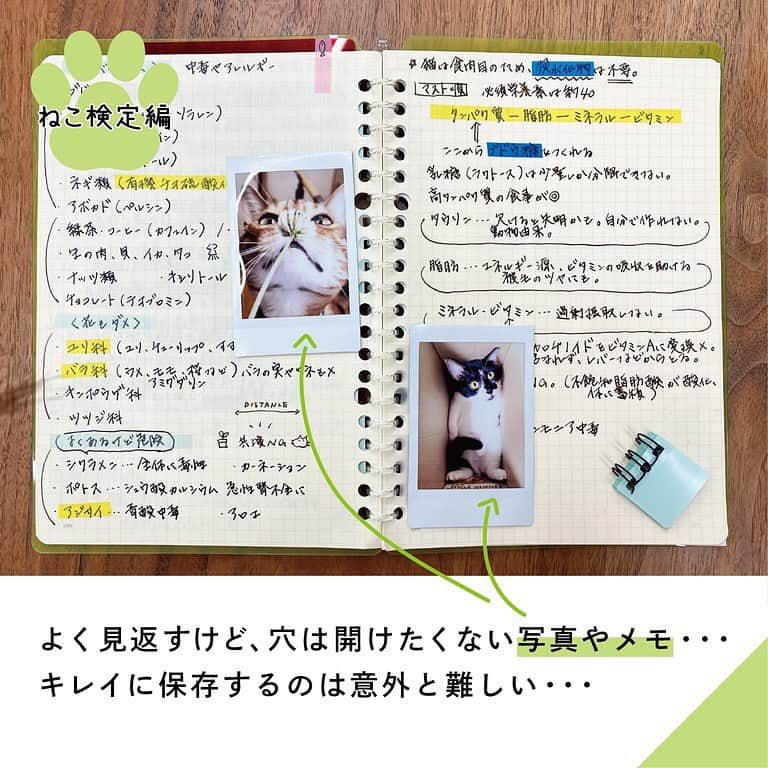 ねこ検定編
中毒やアレルギー
・ネギ類（有機チオ硫酸
・アボカド（ペルシン）
緑茶・コーヒー（カフェイン）
・生の肉、貝、イカ、タコ
・ナッツ類 ・キシリトール
・チョコレート（テオブロミン）
〈花もダメ〉
・ユリ科（ユリ、チューリップ、
・バラ科（ウメ、モモ、桜など）バラの実や
アミグダリン
・キンポウゲ科
・ツツジ科
DISTANCE
よくあるけど危険
共演NG
・シクラメン…全体に毒性 ・カーネーション
・ポトス…シュウ酸カルシウム 急性腎不全に
・アジサイ…青酸中毒 ・アロエ
猫は食肉目のため、炭水化物は不要。
マスト順 必須栄養素は約40
タンパク質ー脂肪ーミネラルービタミン
ここからブドウ糖をつくれる
乳糖（ラクトース）は少量しか分解できない。
高タンパク質の食事が◎
タウリン…欠けると失明かも。自分で作れない。
動物由来。
脂肪…エネルギー源、ビタミンの吸収を助ける
被毛のツヤにも。
ミネラル・ビタミン…過剰摂取しない。
ロテノイドをビタミンAに変換×。
レバーなどからとる。
（不飽和脂肪酸が酸化、
体に蓄積）
よく見返すけど、穴は開けたくない写真やメモ・・・
キレイに保存するのは意外と難しい・・・